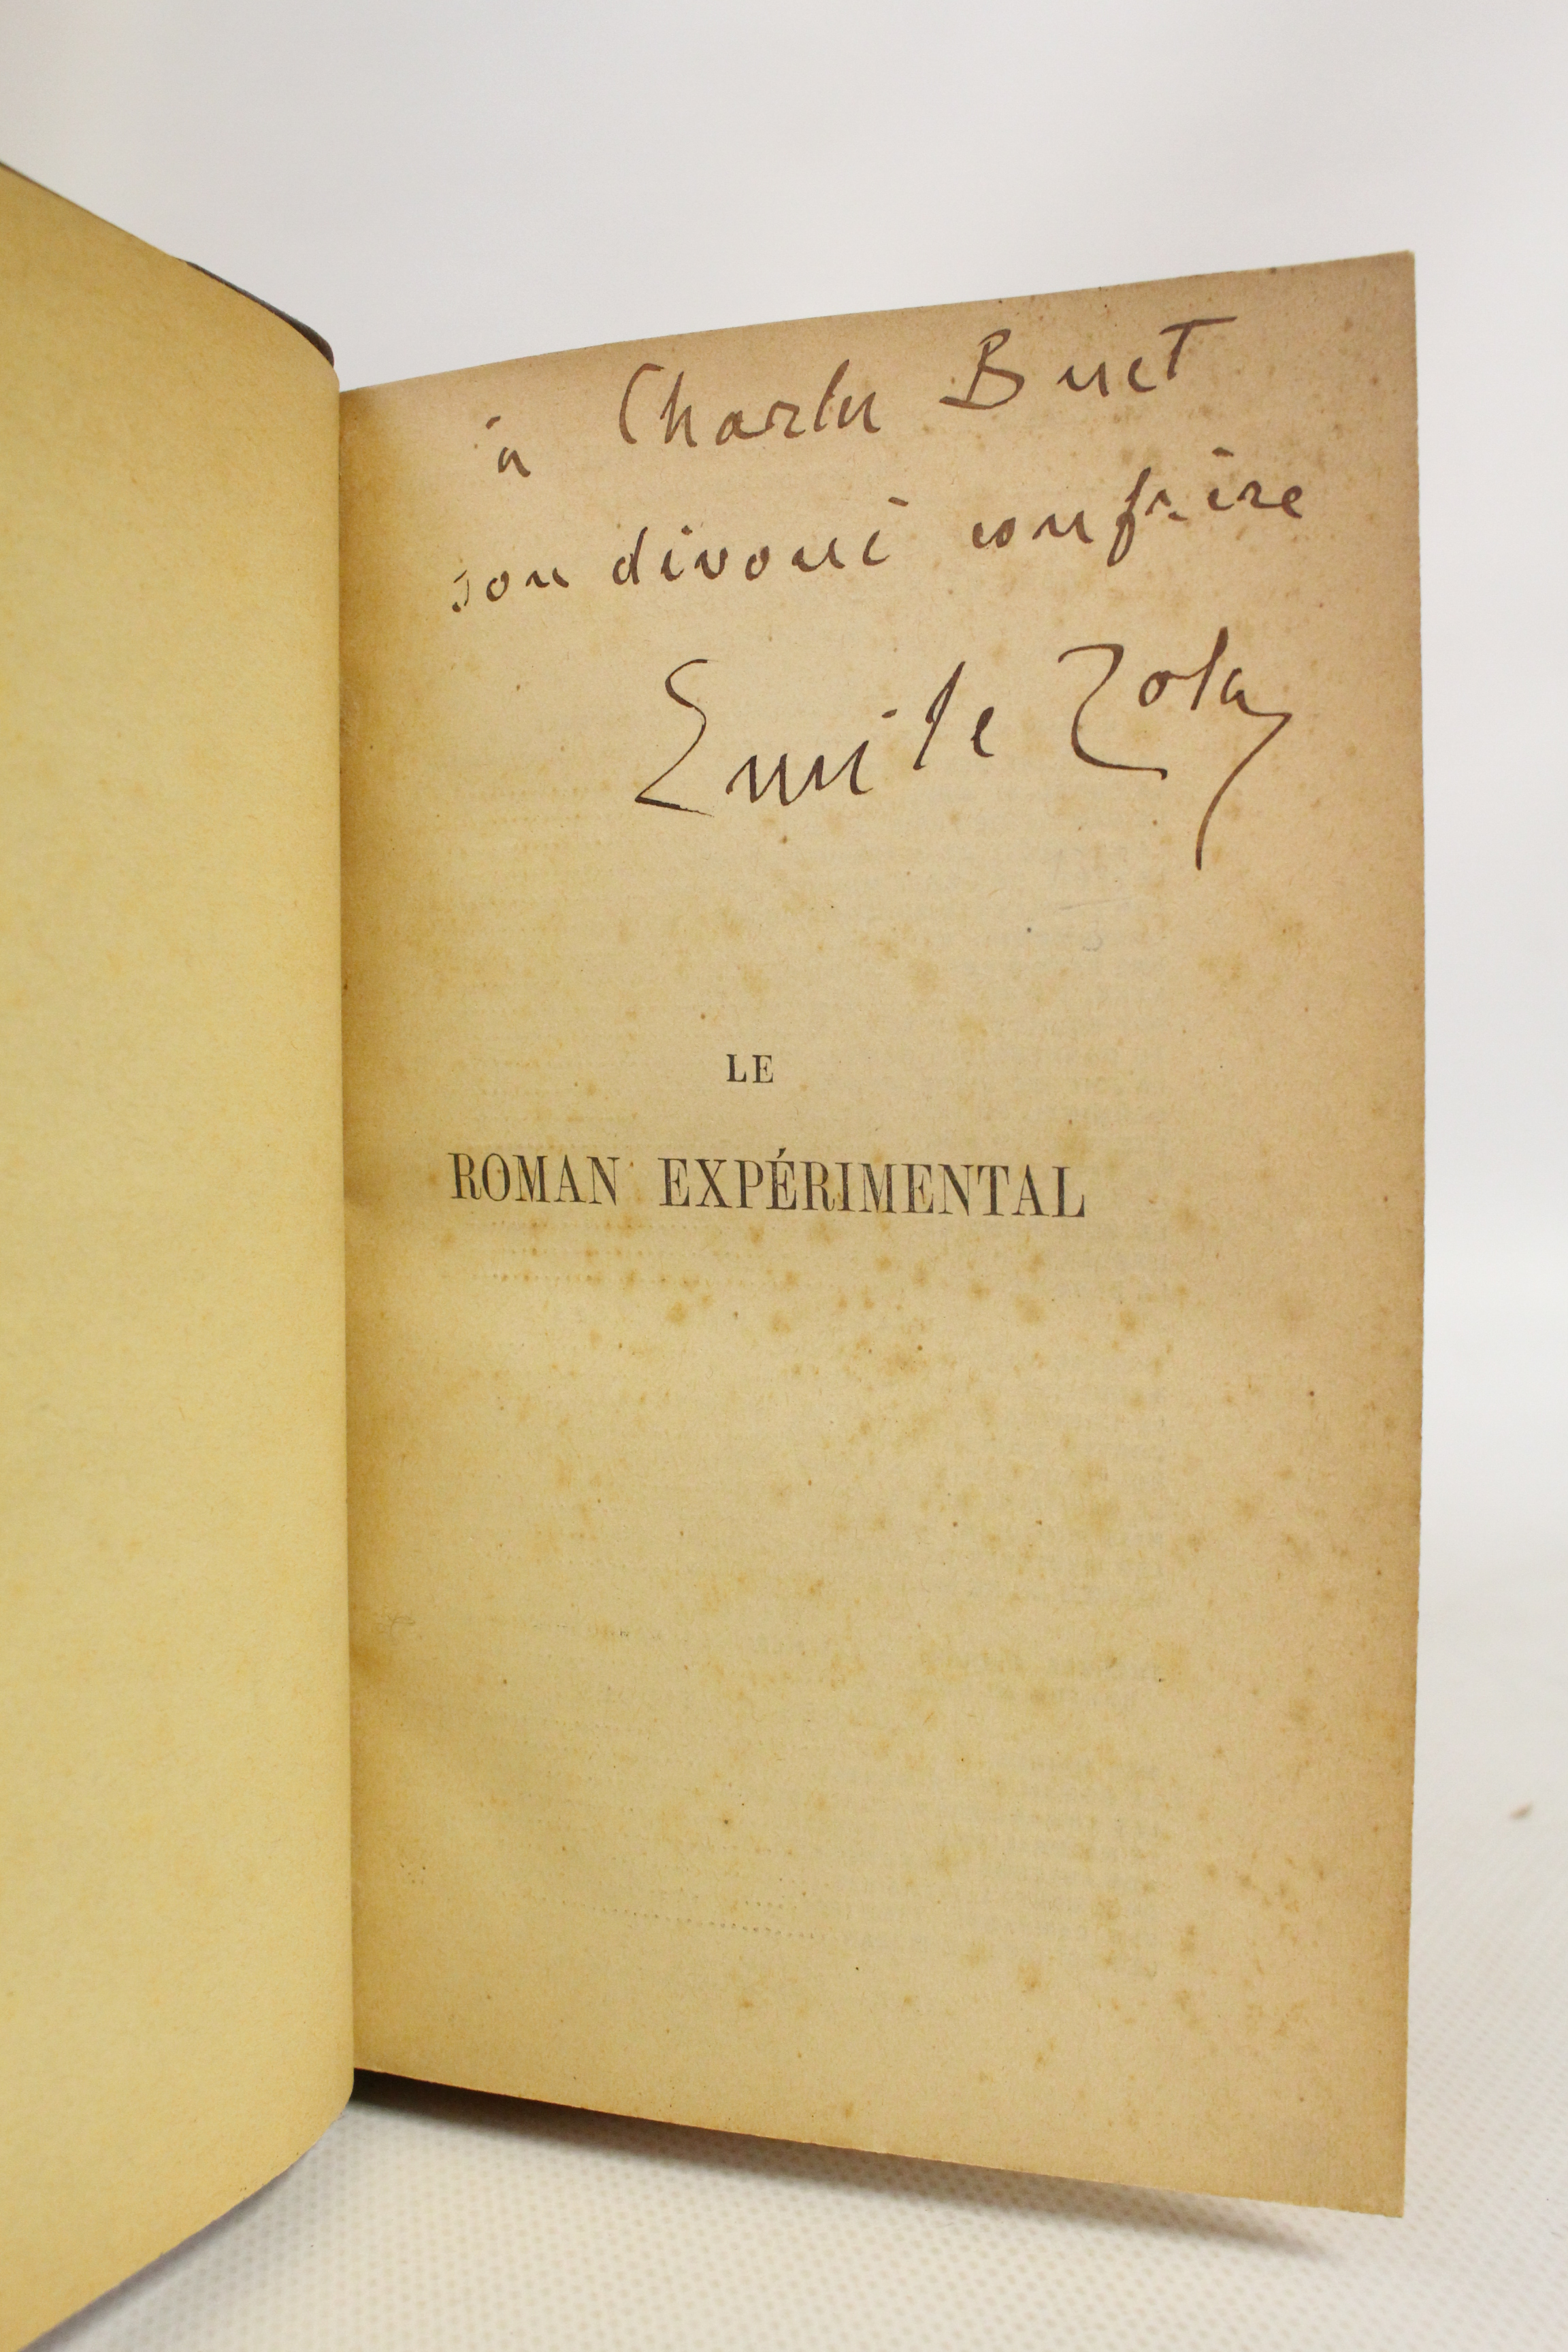 à Charles Buet
son dévoué confrère
Emile Zola
LE
ROMAN EXPÉRIMENTAL